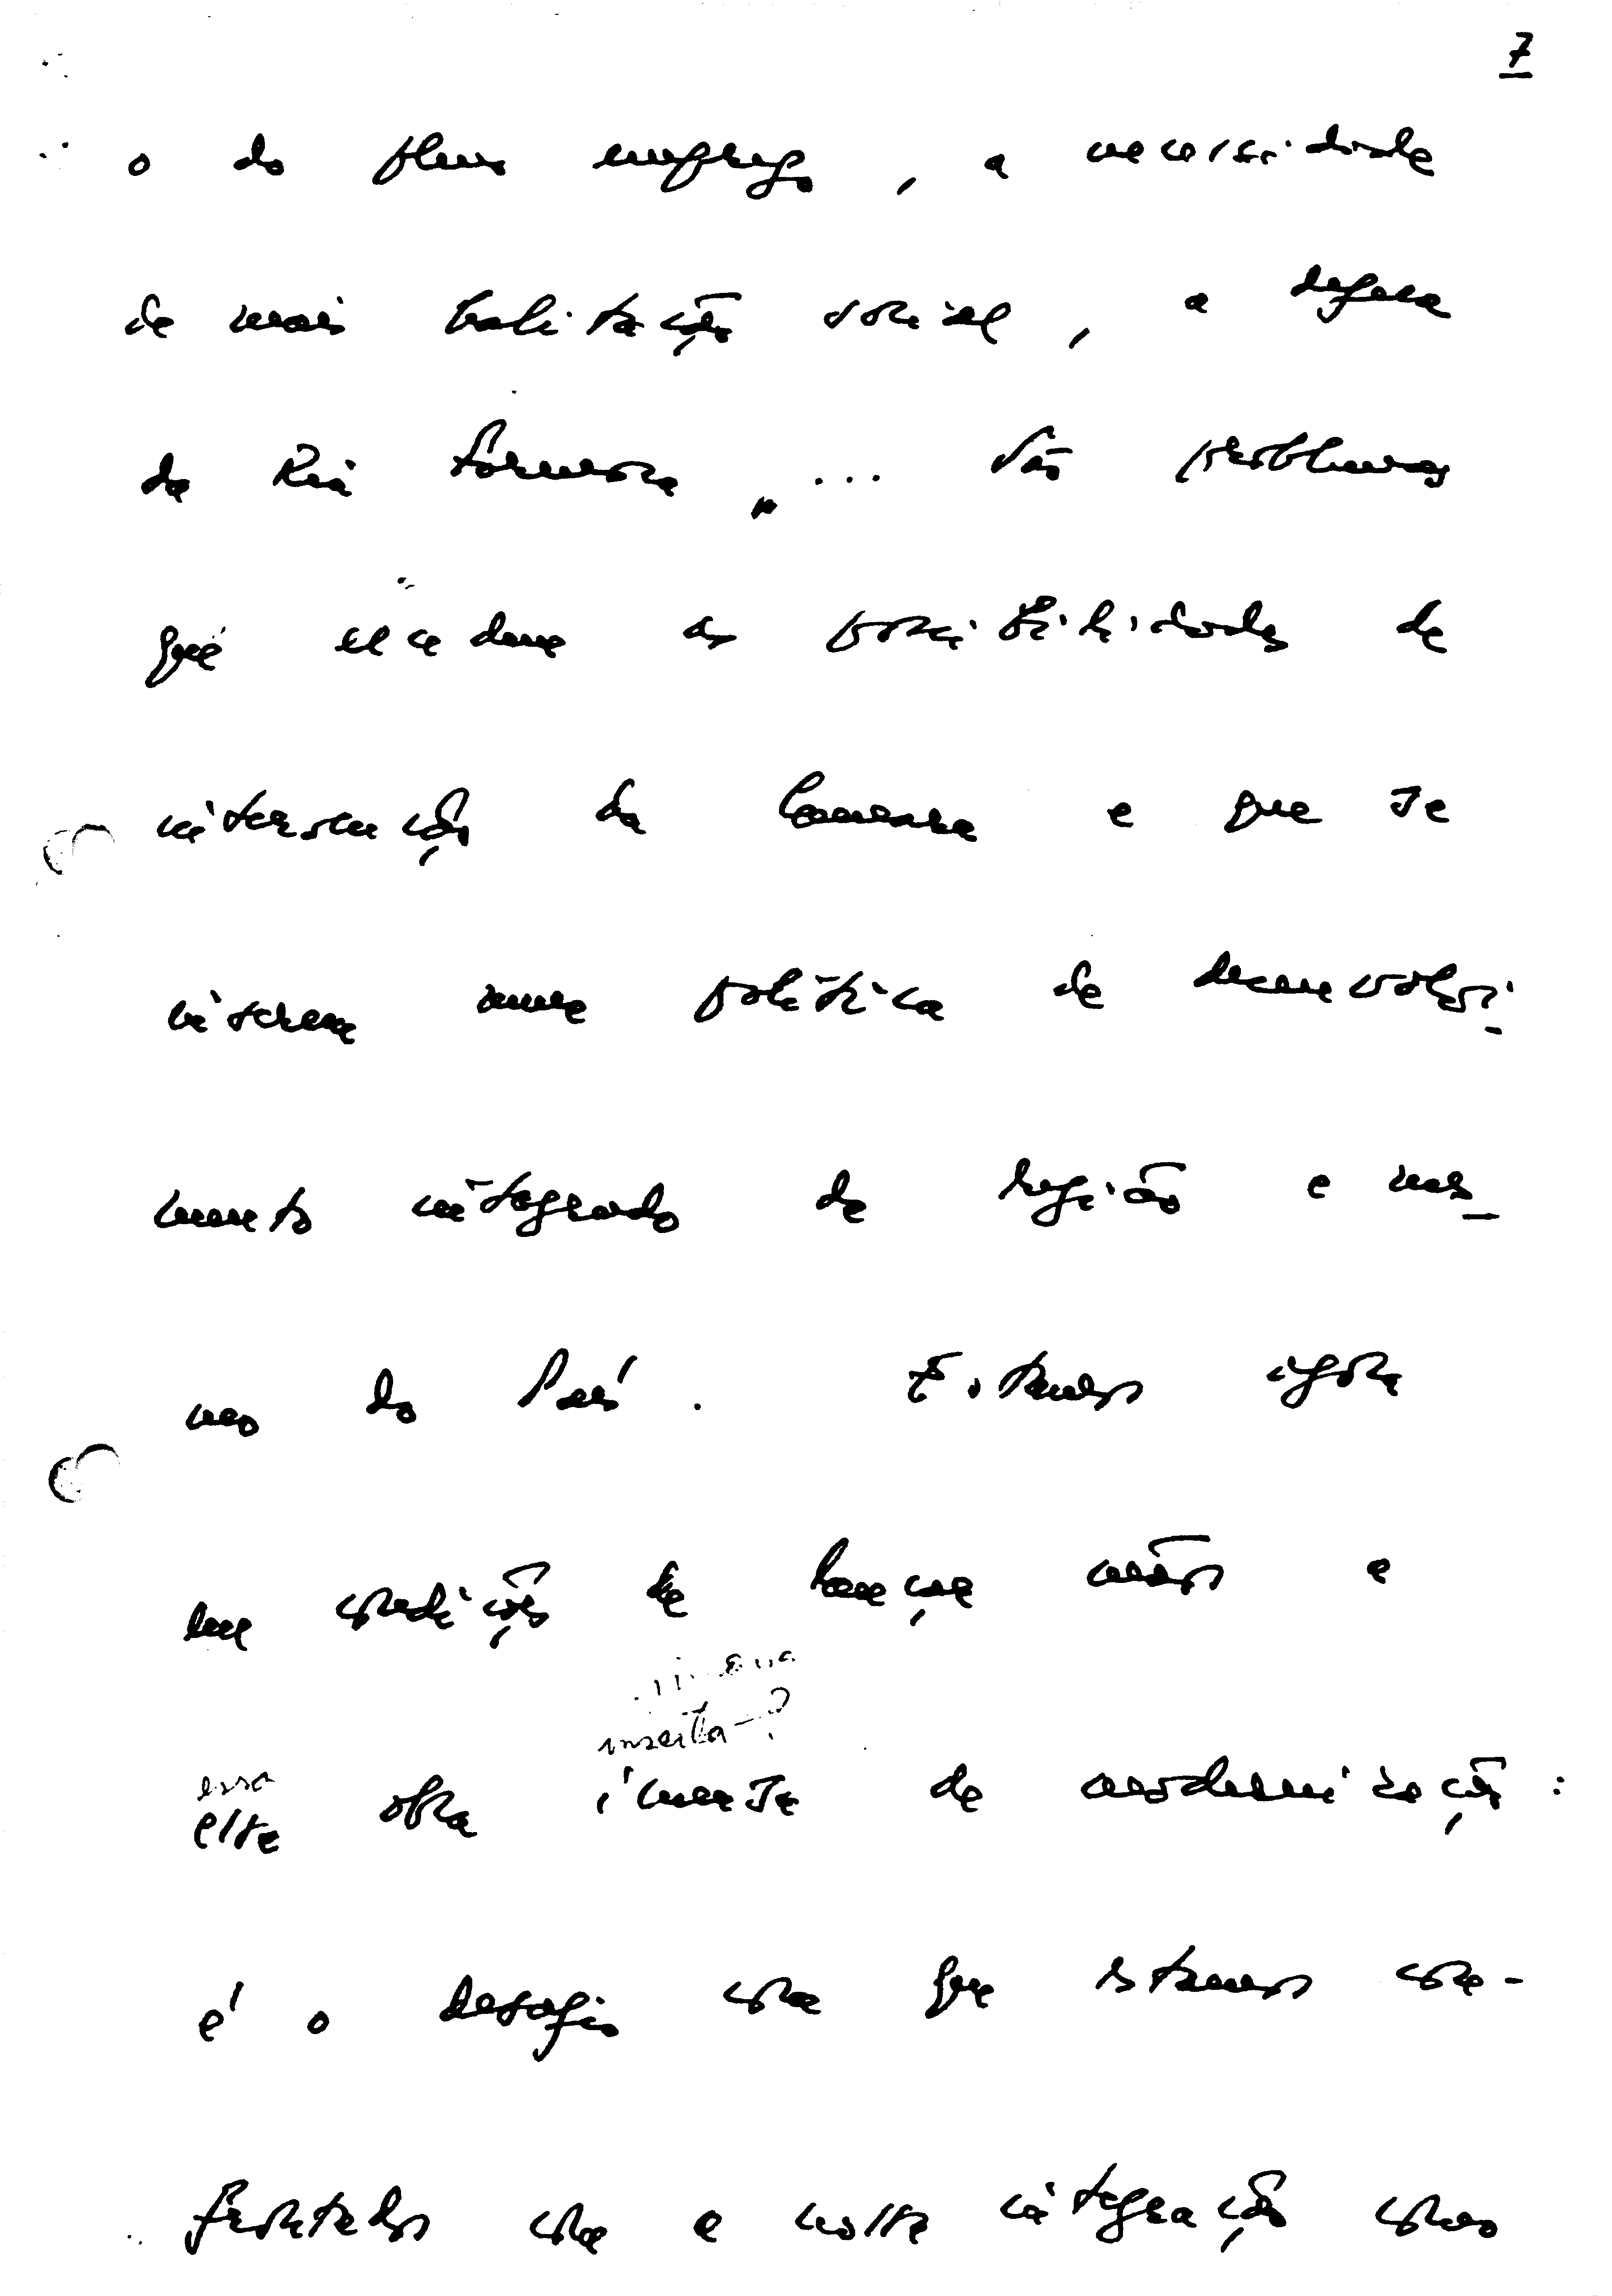 7
o do pleno emprego, a necessidade
de mais habitação social, a defesa
da Ria Formosa, ... São problemas
que excedem as possibilidades de
intervenção da Câmara e que se
inserem numa política de desenvolvi-
mento integrado da região e mes-
mo do País. Estamos agora
em condições de lançar mãos a
inserta-?
essa
esta obra imensa de modernização:
é o desafio com que estamos con-
frontados com a nossa integração como